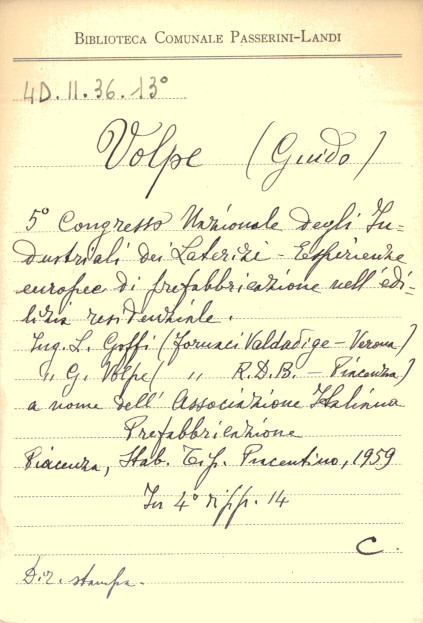 BIBLIOTECA COMUNALE PASSERINI-LANDI
4D.II.36.13°
Volpe (Guido)
5° Congresso Nazionale degli In-
dustriali dei Laterizi - Esperienze
europee di prefabbricazione nell'edi-
lizia residenziale.
Ing. L. Goffi (Fornaci Valdadige - Verona)
" G. Volpe ( " R.D.B. - Piacenza)
a nome dell'Associazione Italiana
Prefabbricazione
Piacenza, Stab. Tip. Piacentino, 1959
In 4° di pp. 14
C.
Dir. stampa.